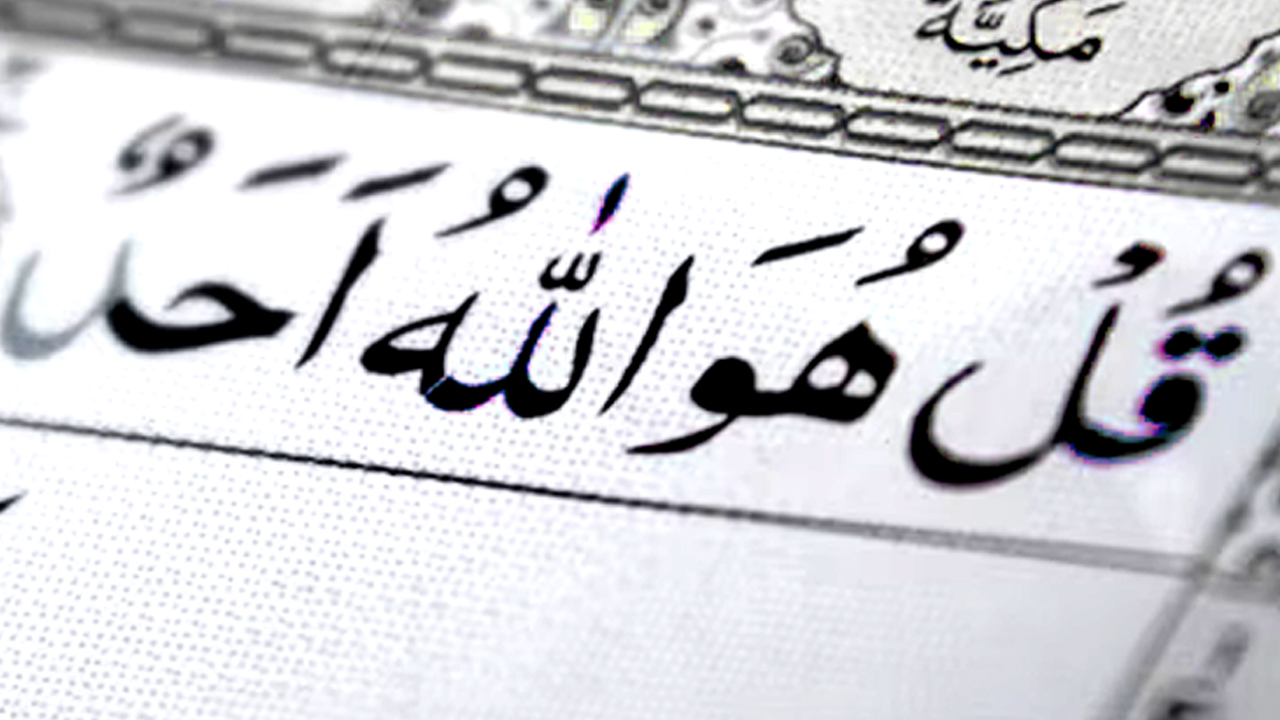 مَكِيَّة
قُلْ هُوَ اللّٰهُ اَحَدٌ